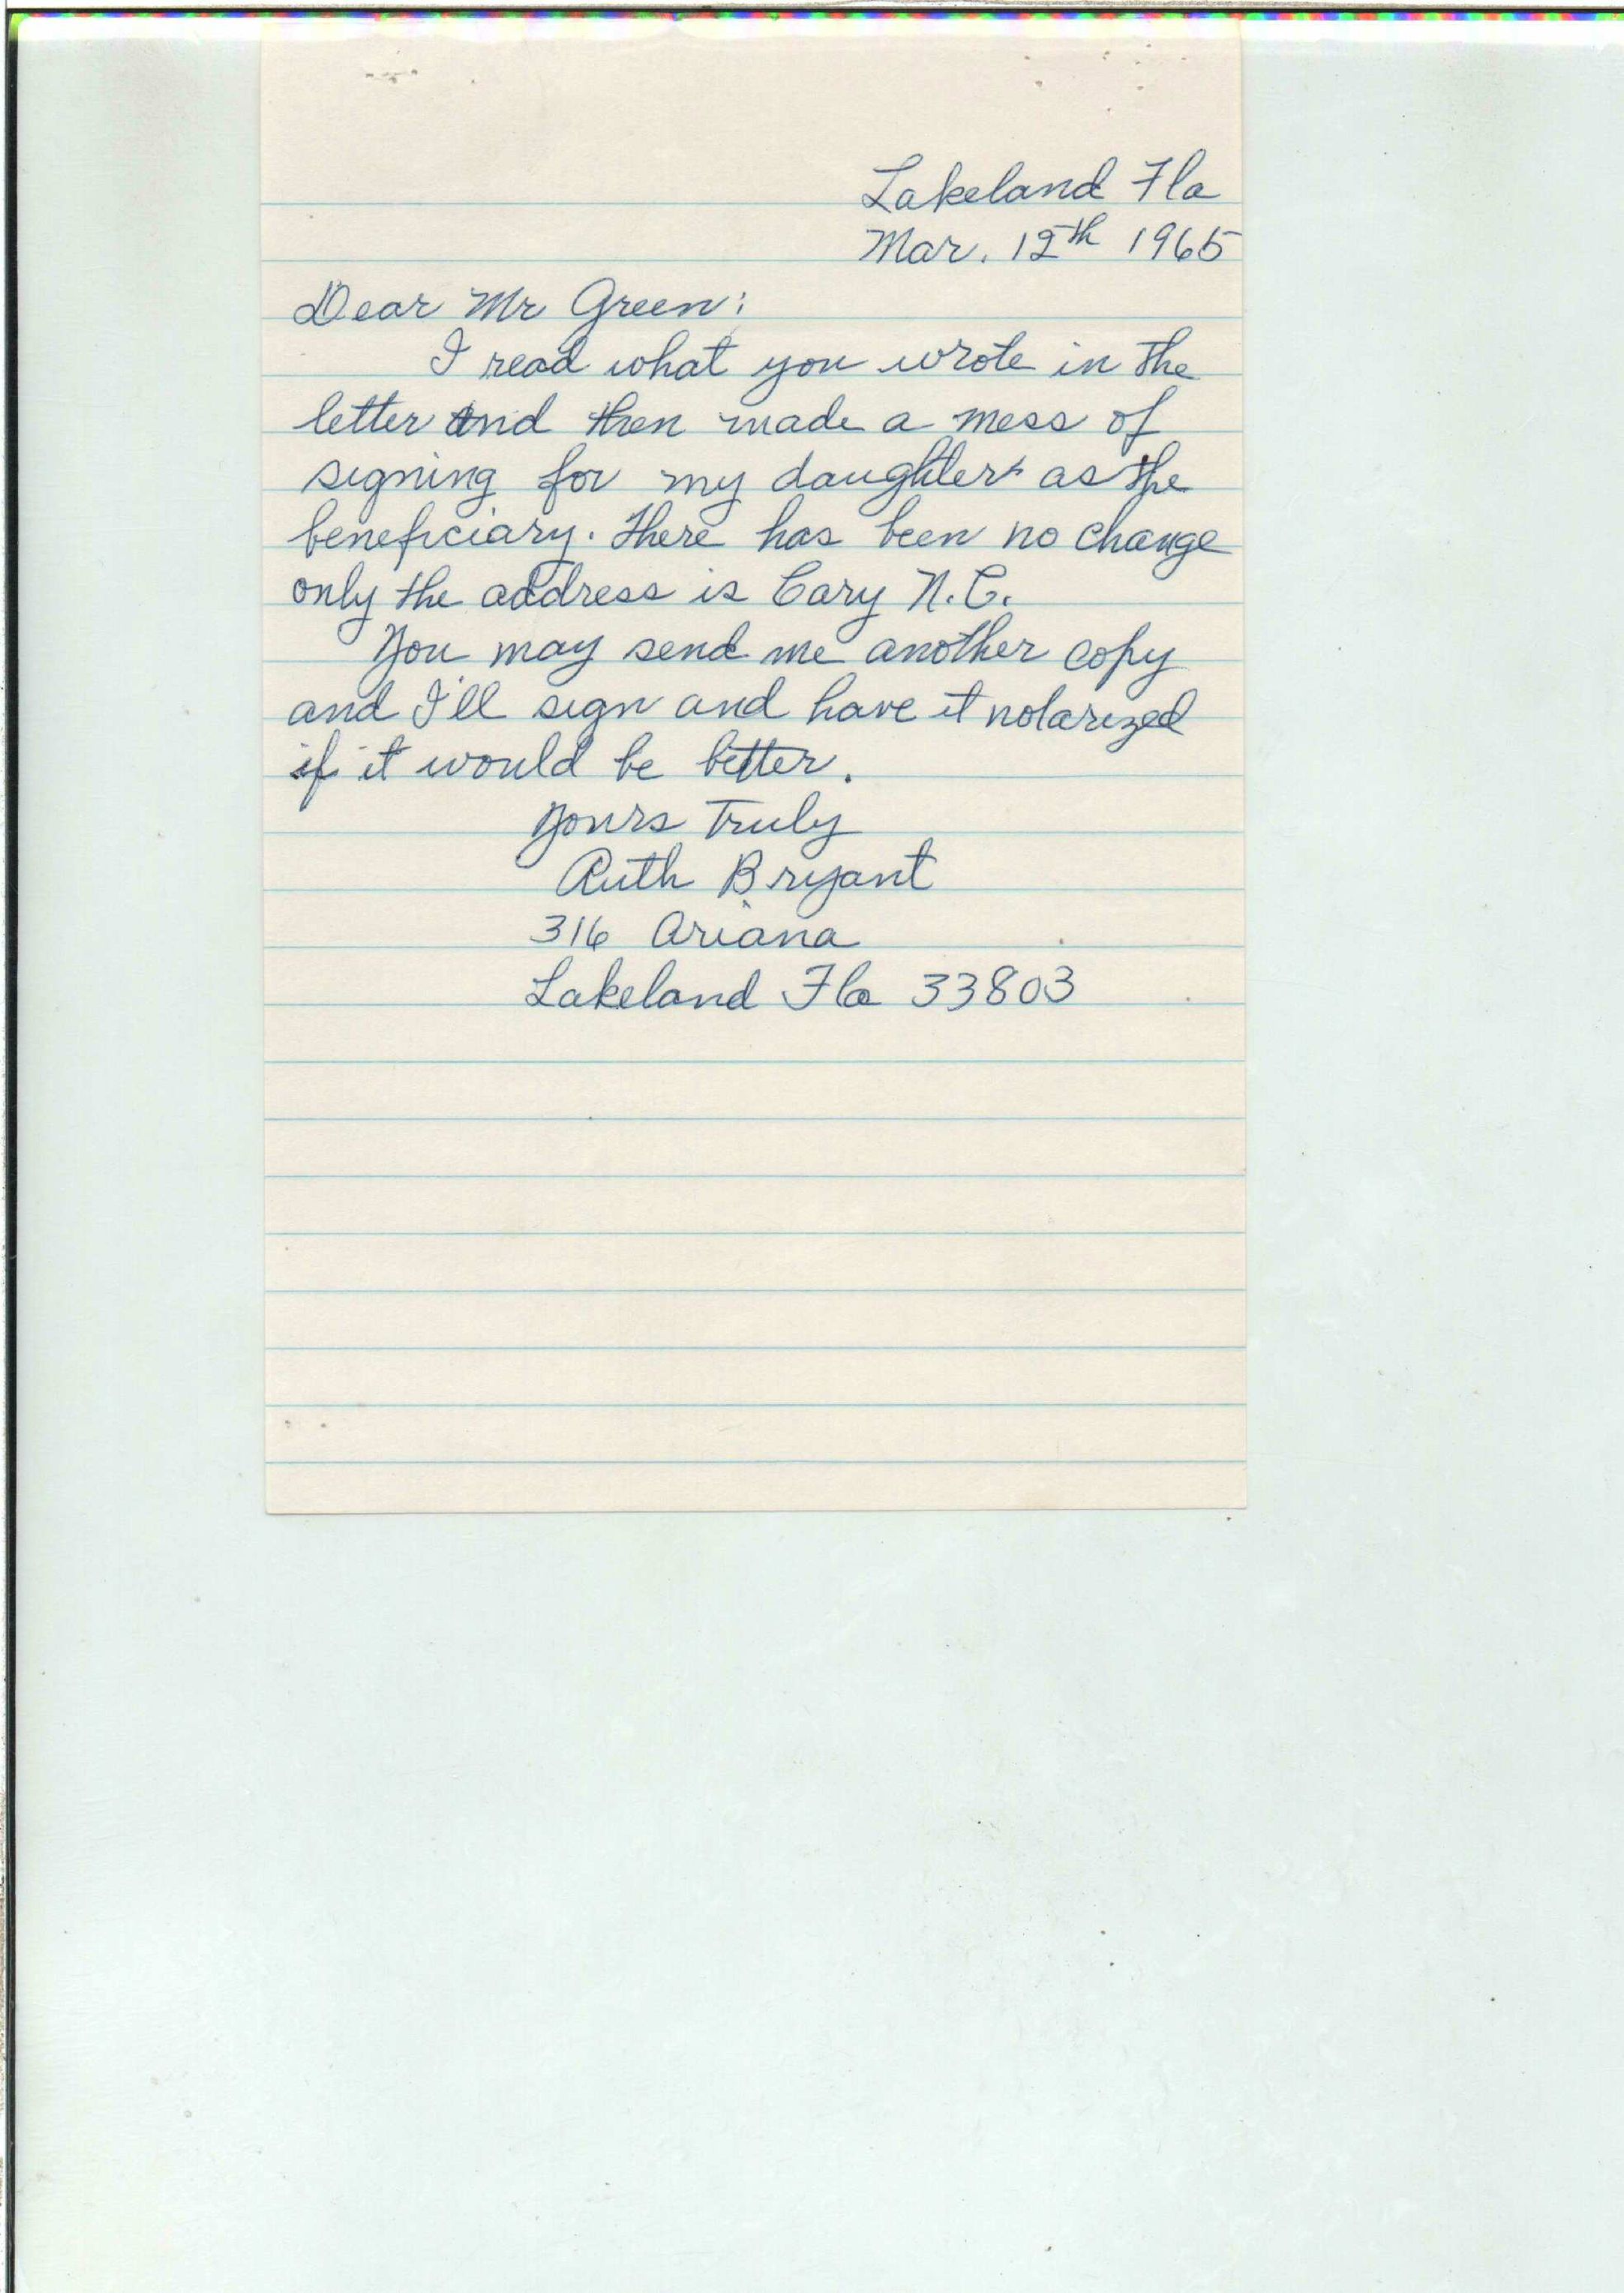 Lakeland Fla
Mar. 12th 1965
Dear Mr Green:
I read what you wrote in the
letter and then made a mess of
signing for my daughters as the
beneficiary. There has been no change
only the address is Cary N.C.
You may send me another copy
and I'll sign and have it notarized
if it would be better.
Yours Truly
Ruth Bryant
316 Ariana
Lakeland Fla 33803